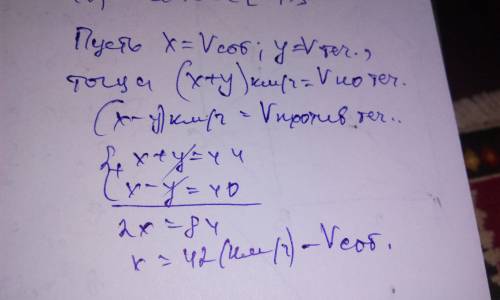 Пусть x = Vсоб; y = Vтеч.,
тогда (x+y) км/ч = Vпо теч.
(x-y) км/ч = Vпротив теч..
x+y=44
x-y=40
2x = 84
x = 42 (км/ч) - Vсоб.